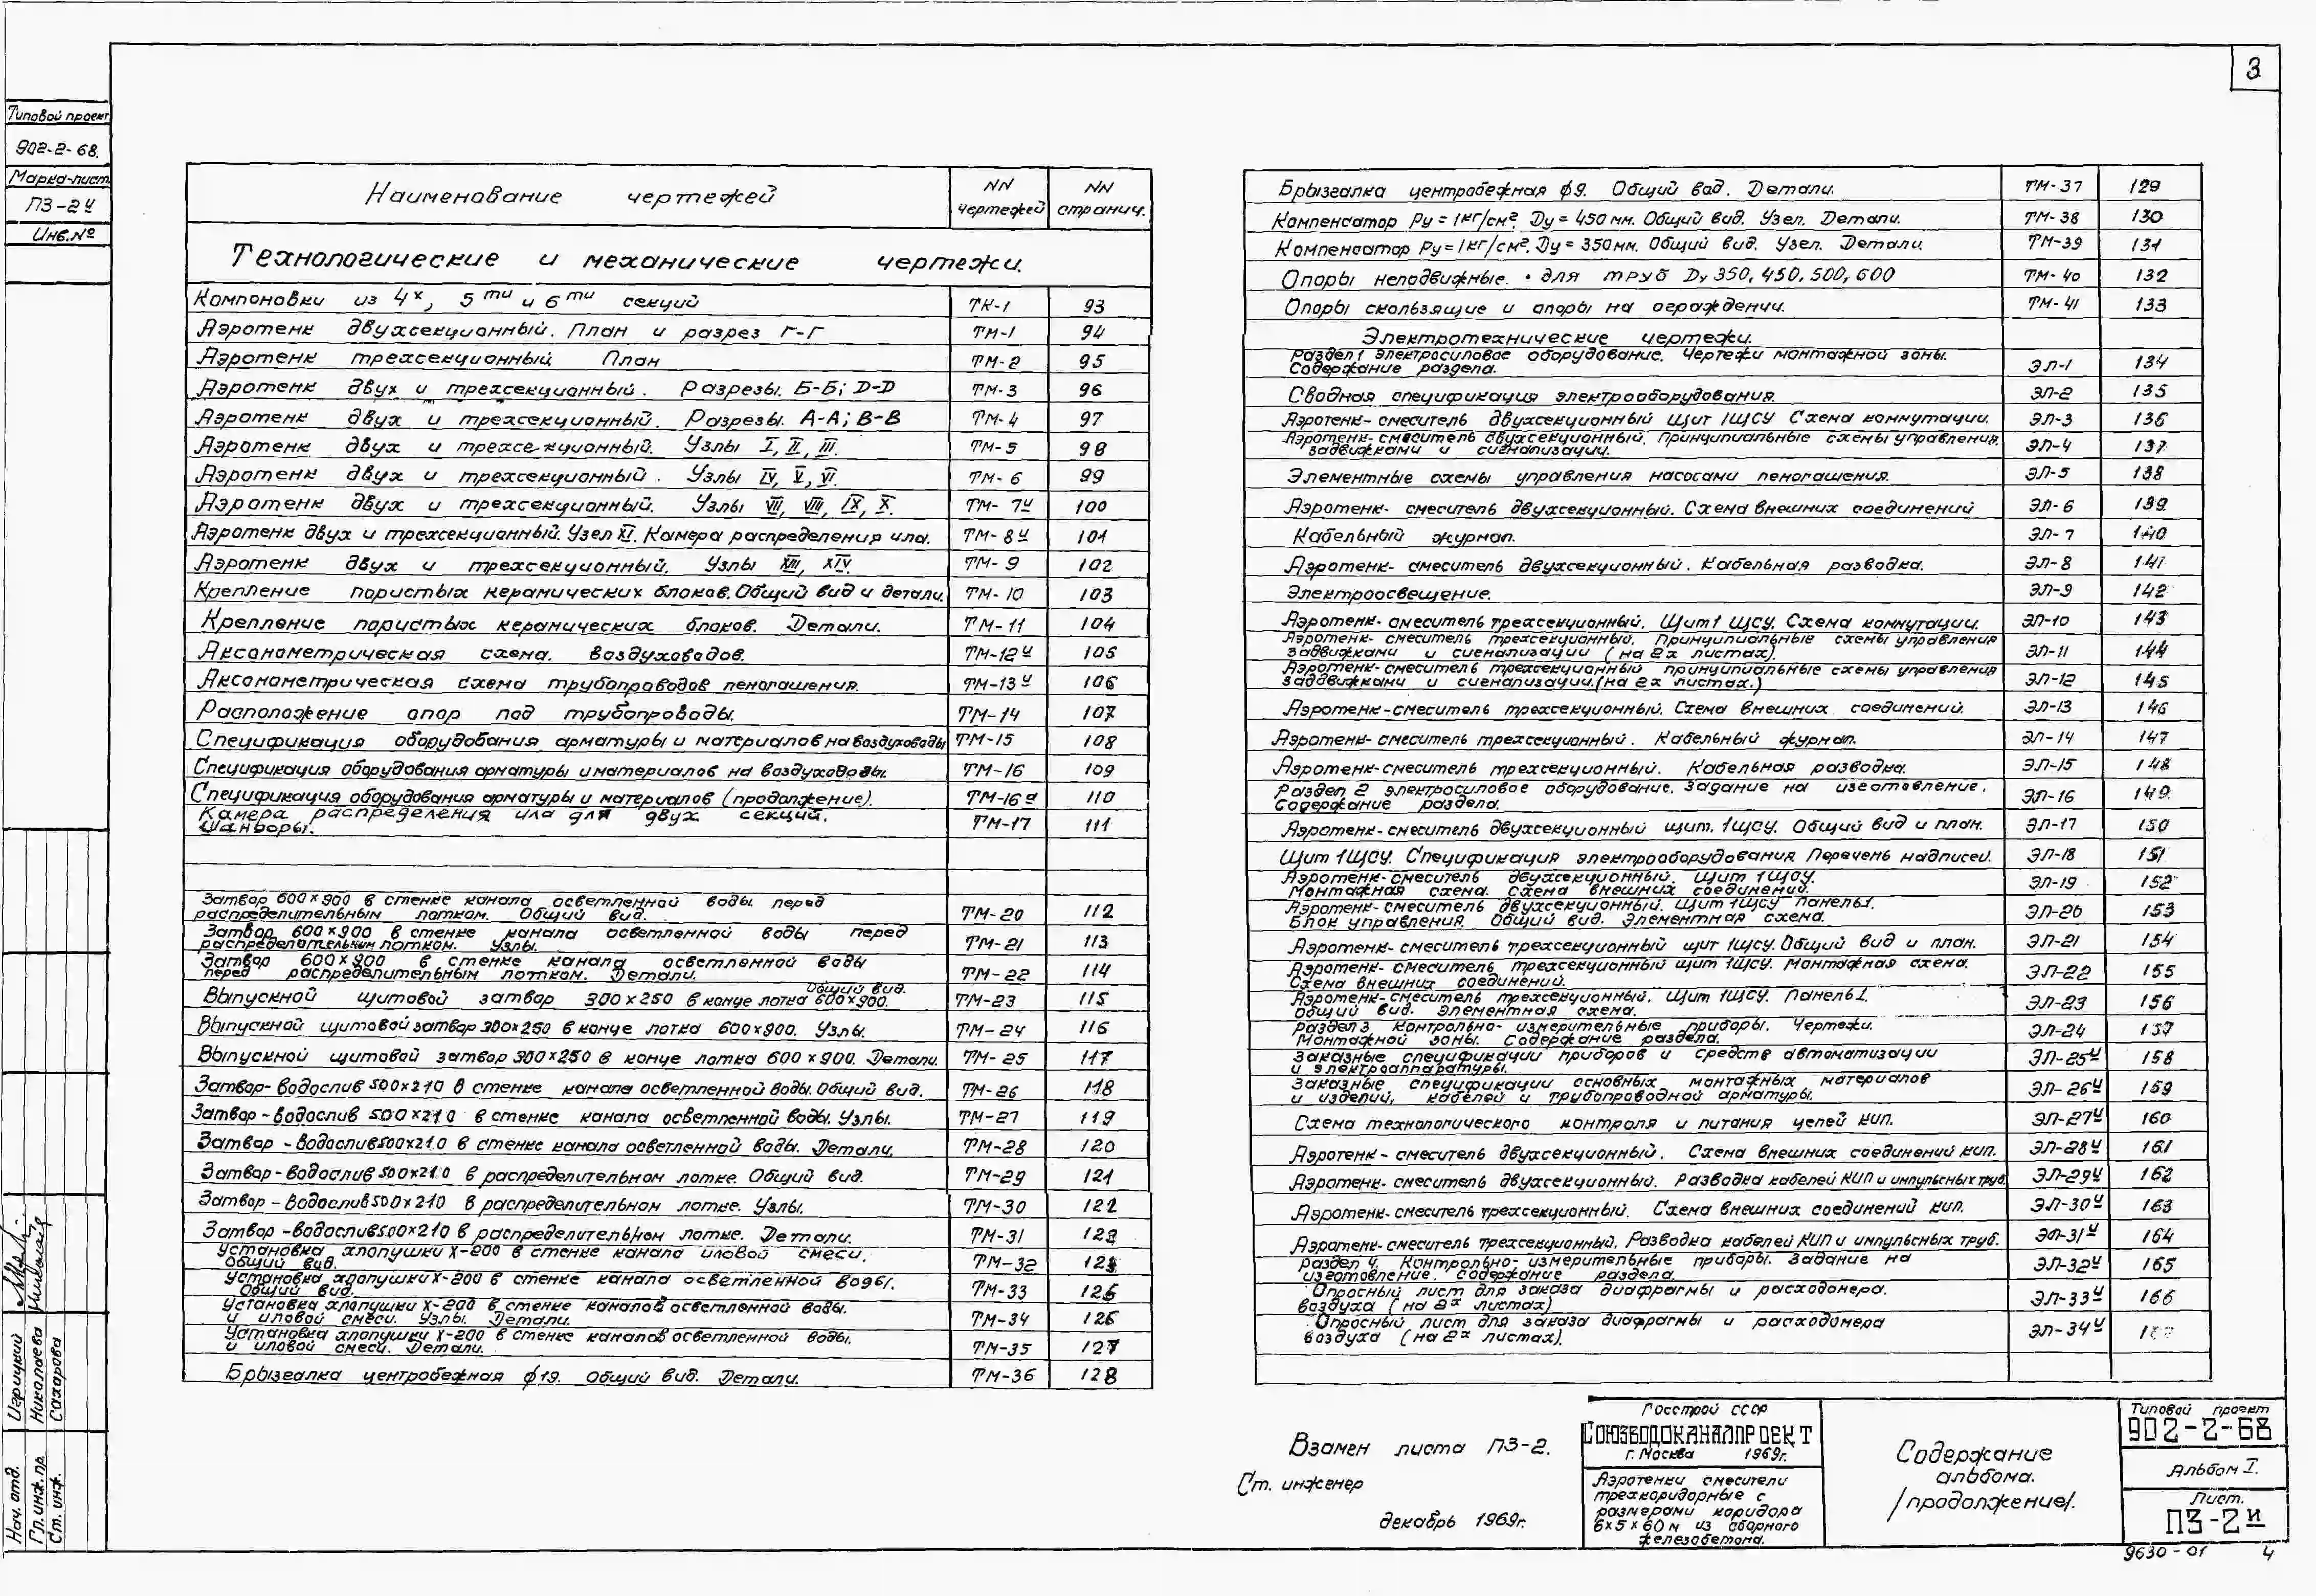 3
Типовой проект
902-2-68.
Марка-лист
ПЗ-2и
Инв.№
Наименование чертежей NN чертежей NN страниц.
Технологические и механические чертежи.
Компоновки из 4х, 5ти и 6ти секций ТК-1 93
Аэротенк двухсекционный. План и разрез Г-Г ТМ-1 94
Аэротенк трехсекционный. План ТМ-2 95
Аэротенк двух и трехсекционный. Разрезы. Б-Б; D-D ТМ-3 96
Аэротенк двух и трехсекционный. Разрезы. А-А; В-В ТМ-4 97
Аэротенк двух и трехсекционный. Узлы I, II, III. ТМ-5 98
Аэротенк двух и трехсекционный. Узлы IV, V, VI. ТМ-6 99
Аэротенк двух и трехсекционный. Узлы VII, VIII, IX, X. ТМ-7и 100
Аэротенк двух и трехсекционный. Узел XI. Камера распределения ила. ТМ-8и 101
Аэротенк двух и трехсекционный. Узлы XIII, XIV. ТМ-9 102
Крепление пористых керамических блоков. Общий вид и детали. ТМ-10 103
Крепление пористых керамических блоков. Детали. ТМ-11 104
Аксонометрическая схема. воздуховодов. ТМ-12и 105
Аксонометрическая схема трубопроводов пеногашения. ТМ-13и 106
Расположение опор под трубопроводы. ТМ-14 107
Спецификация оборудования арматуры и материалов на воздуховоды ТМ-15 108
Спецификация оборудования арматуры и материалов на воздуховоды. ТМ-16 109
Спецификация оборудования арматуры и материалов (продолжение). ТМ-16а 110
Камера распределения ила для двух секций.
Шандоры. ТМ-17 111
Затвор 600×900 в стенке канала осветленной воды перед
распределительным лотком. Общий вид. ТМ-20 112
Затвор 600×900 в стенке канала осветленной воды перед
распределительным лотком. Узлы. ТМ-21 113
Затвор 600×900 в стенке канала осветленной воды
перед распределительным лотком. Детали. ТМ-22 114
Выпускной щитовой затвор 300×250 в конце лотка 600×900. Общий вид. ТМ-23 115
Выпускной щитовой затвор 300×250 в конце лотка 600×900. Узлы. ТМ-24 116
Выпускной щитовой затвор 300×250 в конце лотка 600×900. Детали. ТМ-25 117
Затвор-водослив 500×210 в стенке канала осветленной воды. Общий вид. ТМ-26 118
Затвор-водослив 500×210 в стенке канала осветленной воды. Узлы. ТМ-27 119
Затвор-водослив 500×210 в стенке канала осветленной воды. Детали. ТМ-28 120
Затвор-водослив 500×210 в распределительном лотке. Общий вид. ТМ-29 121
Затвор-водослив 500×210 в распределительном лотке. Узлы. ТМ-30 122
Затвор-водослив 500×210 в распределительном лотке. Детали. ТМ-31 123
Установка хлопушки Х-200 в стенке канала иловой смеси.
Общий вид. ТМ-32
Установка хлопушки Х-200 в стенке канала осветленной воды.
Общий вид. ТМ-33
Установка хлопушки Х-200 в стенке каналов осветленной воды.
и иловой смеси. Узлы. Детали. ТМ-34 126
Установка хлопушки Х-200 в стенке каналов осветленной воды.
и иловой смеси. Детали. ТМ-35 127
Брызгалка центробежная ф19. Общий вид. Детали. ТМ-36 128
Брызгалка центробежная ф9. Общий вид. Детали. ТМ-37 129
Компенсатор Ру=1кг/см². Dу=450мм. Общий вид. Узел. Детали. ТМ-38 130
Компенсатор Ру=1кг/см². Dу=350мм. Общий вид. Узел. Детали. ТМ-39 131
Опоры неподвижные. для труб Dу 350, 450, 500, 600 ТМ-40 132
Опоры скользящие и опоры на ограждении. ТМ-41 133
Электротехнические чертежи.
Раздел 1 Электросиловое оборудование. Чертежи монтажной зоны.
Содержание раздела. ЭЛ-1 134
Сводная спецификация электрооборудования. ЭЛ-2 135
Аэротенк-смеситель двухсекционный Щит 1ЩСУ Схема коммутации. ЭЛ-3 136
Аэротенк-смеситель двухсекционный. Принципиальные схемы управления
задвижками и сигнализации. ЭЛ-4 137
Элементные схемы управления насосами пеногашения. ЭЛ-5 138
Аэротенк-смеситель двухсекционный. Схема внешних соединений ЭЛ-6 139
Кабельный журнал. ЭЛ-7 140
Аэротенк-смеситель двухсекционный. Кабельная разводка. ЭЛ-8 141
Электроосвещение. ЭЛ-9 142
Аэротенк-смеситель трехсекционный. Щит 1 ЩСУ. Схема коммутации. ЭЛ-10 143
Аэротенк-смеситель трехсекционный. Принципиальные схемы управления
задвижками и сигнализации (на 2х листах). ЭЛ-11 144
Аэротенк-смеситель трехсекционный принципиальные схемы управления
задвижками и сигнализации. (на 2х листах.) ЭЛ-12 145
Аэротенк-смеситель трехсекционный. Схема внешних соединений. ЭЛ-13 146
Аэротенк-смеситель трехсекционный. Кабельный журнал. ЭЛ-14 147
Аэротенк-смеситель трехсекционный. Кабельная разводка. ЭЛ-15 148
Раздел 2 электросиловое оборудование. Задание на изготовление.
Содержание раздела. ЭЛ-16 149
Аэротенк-смеситель двухсекционный щит. 1ЩСУ. Общий вид и план. ЭЛ-17 150
Щит 1ЩСУ. Спецификация электрооборудования Перечень надписей. ЭЛ-18 151
Аэротенк-смеситель двухсекционный. Щит 1ЩСУ.
Монтажная схема. Схема внешних соединений. ЭЛ-19 152
Аэротенк-смеситель двухсекционный. Щит 1ЩСУ Панель1.
Блок управления. Общий вид. Элементная схема. ЭЛ-20 153
Аэротенк-смеситель трехсекционный щит 1ЩСУ. Общий вид и план. ЭЛ-21 154
Аэротенк-смеситель трехсекционный щит 1ЩСУ. Монтажная схема.
Схема внешних соединений. ЭЛ-22 155
Аэротенк-смеситель трехсекционный. Щит 1ЩСУ. Панель1.
Общий вид. Элементная схема. ЭЛ-23 156
Раздел 3 Контрольно-измерительные приборы. Чертежи.
Монтажной зоны. Содержание раздела. ЭЛ-24 157
Заказные спецификации приборов и средств автоматизации
и электроаппаратуры. ЭЛ-25и 158
Заказные спецификации основных монтажных материалов
и изделий, кабелей и трубопроводной арматуры. ЭЛ-26и 159
Схема технологического контроля и питания цепей КИП. ЭЛ-27и 160
Аэротенк-смеситель двухсекционный. Схема внешних соединений КИП. ЭЛ-28и 161
Аэротенк-смеситель двухсекционный. Разводка кабелей КИП и импульсных труб. ЭЛ-29и 162
Аэротенк-смеситель трехсекционный. Схема внешних соединений КИП. ЭЛ-30и 163
Аэротенк-смеситель трехсекционный. Разводка кабелей КИП и импульсных труб. ЭЛ-31и 164
Раздел 4. Контрольно-измерительные приборы. Задание на
изготовление. Содержание раздела. ЭЛ-32и 165
Опросный лист для заказа диафрагмы и расходомера.
воздуха (на 2х листах) ЭЛ-33и 166
Опросный лист для заказа диафрагмы и расходомера
воздуха (на 2х листах). ЭЛ-34и
Нач. отд. Игрицкий
Гл. инж. пр. Николаева
Ст. инж. Сахарова
Взамен листа ПЗ-2.
Ст. инженер
декабрь 1969г.
Госстрой СССР
СОЮЗВОДОКАНАЛПРОЕКТ
г. Москва 1969г.
Аэротенки смесители
трехкоридорные с
размерами коридора
6×5×60м из сборного
железобетона.
Содержание
альбома.
/продолжение/.
Типовой проект
902-2-68
Альбом I.
Лист.
ПЗ-2и
9630-01 4